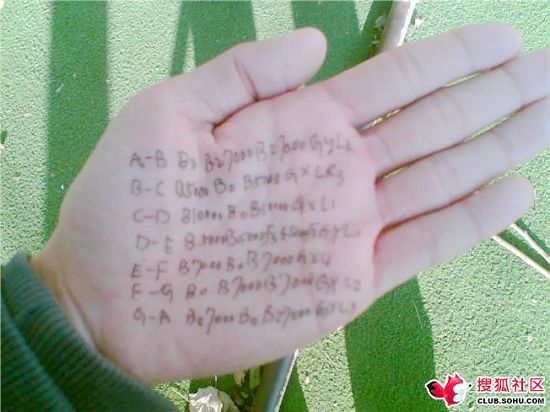 A-B B0 B27000 B27000 GyL2
B-C B5000 B0 B5000 GX LR3
C-D B1000 B0 B1000 GXL1
D-E
E-F B7000 B0 B7000 GXL4
F-G B0 B7000 B7000 GYL2
G-A B27000 B0 B27000 GYL3
搜狐社区
CLUB.SOHU.COM